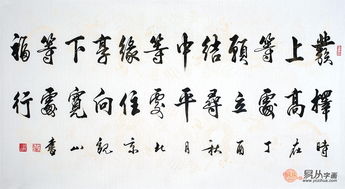 發上等願結中等緣享下等福
擇高處立尋平處住向寬處行
時在丁酉秋月北京觀山書
易从字画